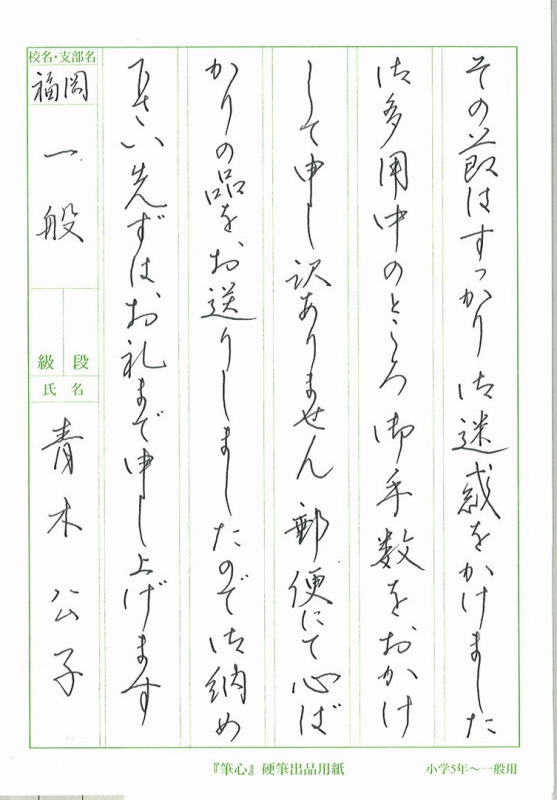 その節はすっかり御迷惑をかけました
御多用中のところ御手数をおかけ
して申し訳ありません郵便にて心ば
かりの品を、お送りしましたので御納め
下さい先ずは、お礼まで申し上げます
校名・支部名
福岡
一般
級 段
氏名
青木公子
『筆心』硬筆出品用紙
小学5年〜一般用